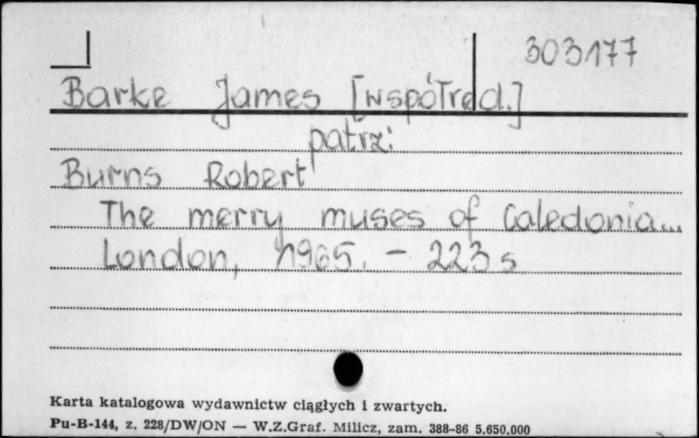 303177
Barke James [współred.]
patrz:
Burns Robert
The merry muses of Caledonia...
London, 1965. - 223 s
Karta katalogowa wydawnictw ciągłych i zwartych.
Pu-B-144, z. 228/DW/ON — W.Z.Graf. Milicz, zam. 388-86 5.650.000